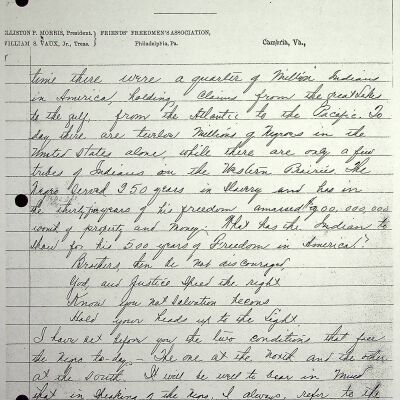 ELLISTON P. MORRIS, President. } FRIENDS' FREEDMEN'S ASSOCIATION,
WILLIAM S. VAUX, Jr., Treas. } Philadelphia, Pa. Cambria, Va.,
time there were a quarter of Million Indians
in America, holding Claims from the great Lakes
to the gulf, from the Atlantic to the Pacific. To
day there are twelve Millions of Negroes in the
United States alone, while there are only a few
tribes of Indians on the Western Prairies. The
Negro served 250 years in Slavery and has in
the thirty years of his freedom amassed $900,000,000
worth of property and Money. What has the Indian to
show for his 500 years of Freedom in America?"
Brothers, then be not discouraged,
God, and Justice speed the right
Know you not Salvation
Hold your heads up to the light
I have set before you the two conditions that face
the Negro to-day - The one at the North and the other
at the South. It will be well to bear in Mind
that in speaking of the Negro, I always refer to the